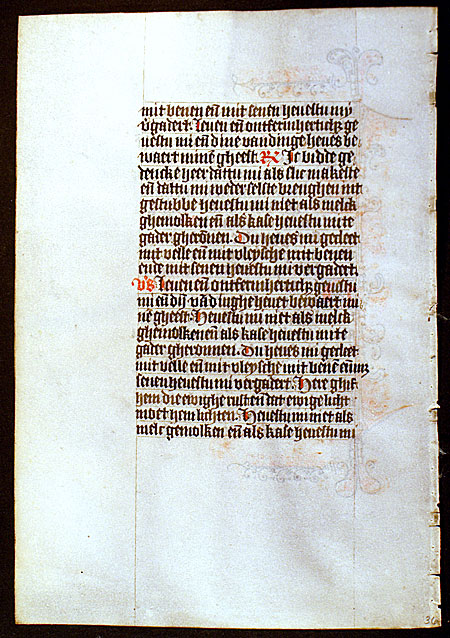 mit benen en̄ mit senen heuestu my
v̄gadert. leuen en̄ ontfermhertich̄z ge
uestu mi en̄ dine vandinge heuet be
waert minē gheest. R̸ Ic bidde ge
dencke heer dattu mi als slic makeste
en̄ dattu mi weder selste brenghen int
gestubbe heuestu mi niet als melck
ghemolken en̄ als kase heuestu mi te
gader gherōnen. Du heues mi gecleet
mit velle en̄ mit vleysche mit benen
ende mit senen heuestu mi vergadert.
v̸s leuen en̄ ontfermhertich̄z geuestu
mi en̄ dijn vādinghe heuet bewaert mi
nē gheest. Heuestu mi niet als melck
ghemolken en̄ als kase heuestu mi te
gader gheronnen. Du heues mi gecleet
mit velle en̄ mit vleysche mit benē en̄ mz
senen heuestu mi vergadert. Here ghif
hem die ewighe rust en̄ dat ewige licht
moet hem lichten. Heuestu mi niet als
melc gemolken en̄ als kase heuestu mi
36